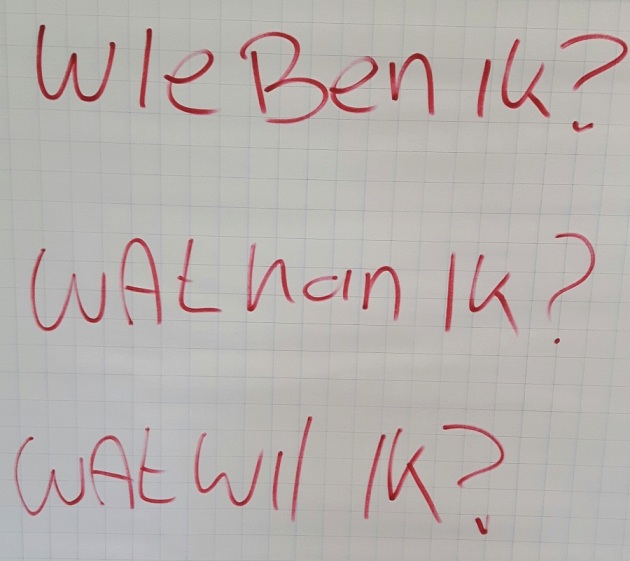 Wie Ben ik?
WAt kan ik?
WAt wil ik?